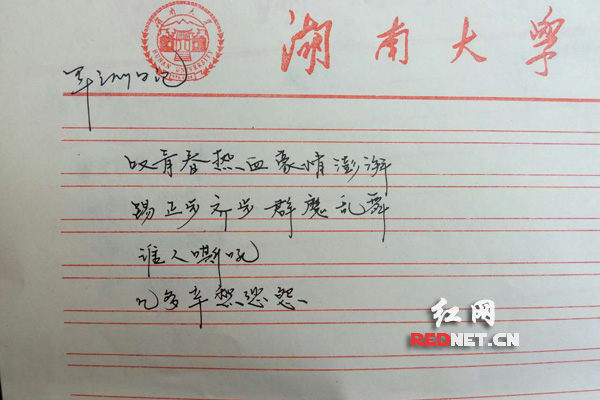 湖南大学
HUNAN UNIVERSITY
湖南大学
军训日记
叹青春热血豪情澎湃
踢正步齐步群魔乱舞
谁人嘶吼
几多辛愁恣怨
红网
REDNET.CN